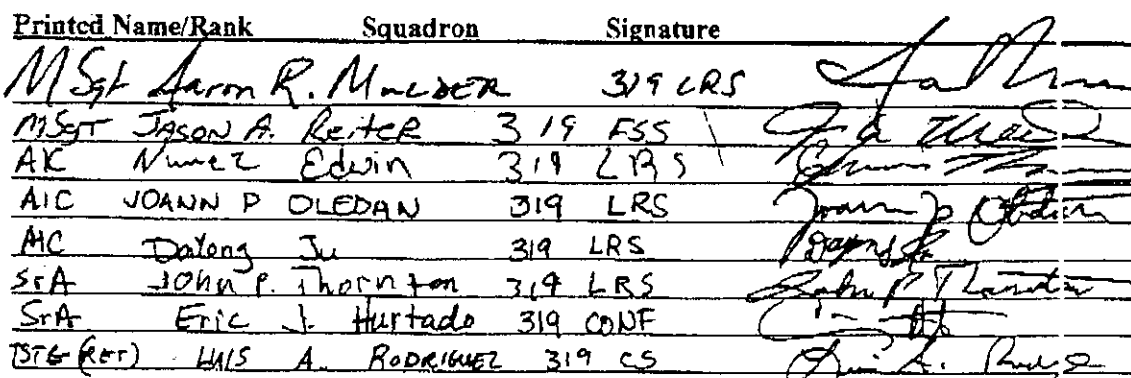 Printed Name/Rank Squadron Signature
MSgt Aaron R. Mulder 319 LRS
MSgt JASON A. Reiter 319 FSS
A1C Nunez Edwin 319 LRS
A1C JOANN P OLEDAN 319 LRS Joann P Oledan
A1C Dalong Ju 319 LRS
SrA John P. Thornton 319 LRS John P Thornton
SrA Eric J. Hurtado 319 CONF
TSTG (RET) LUIS A. RODRIGUEZ 319 CS